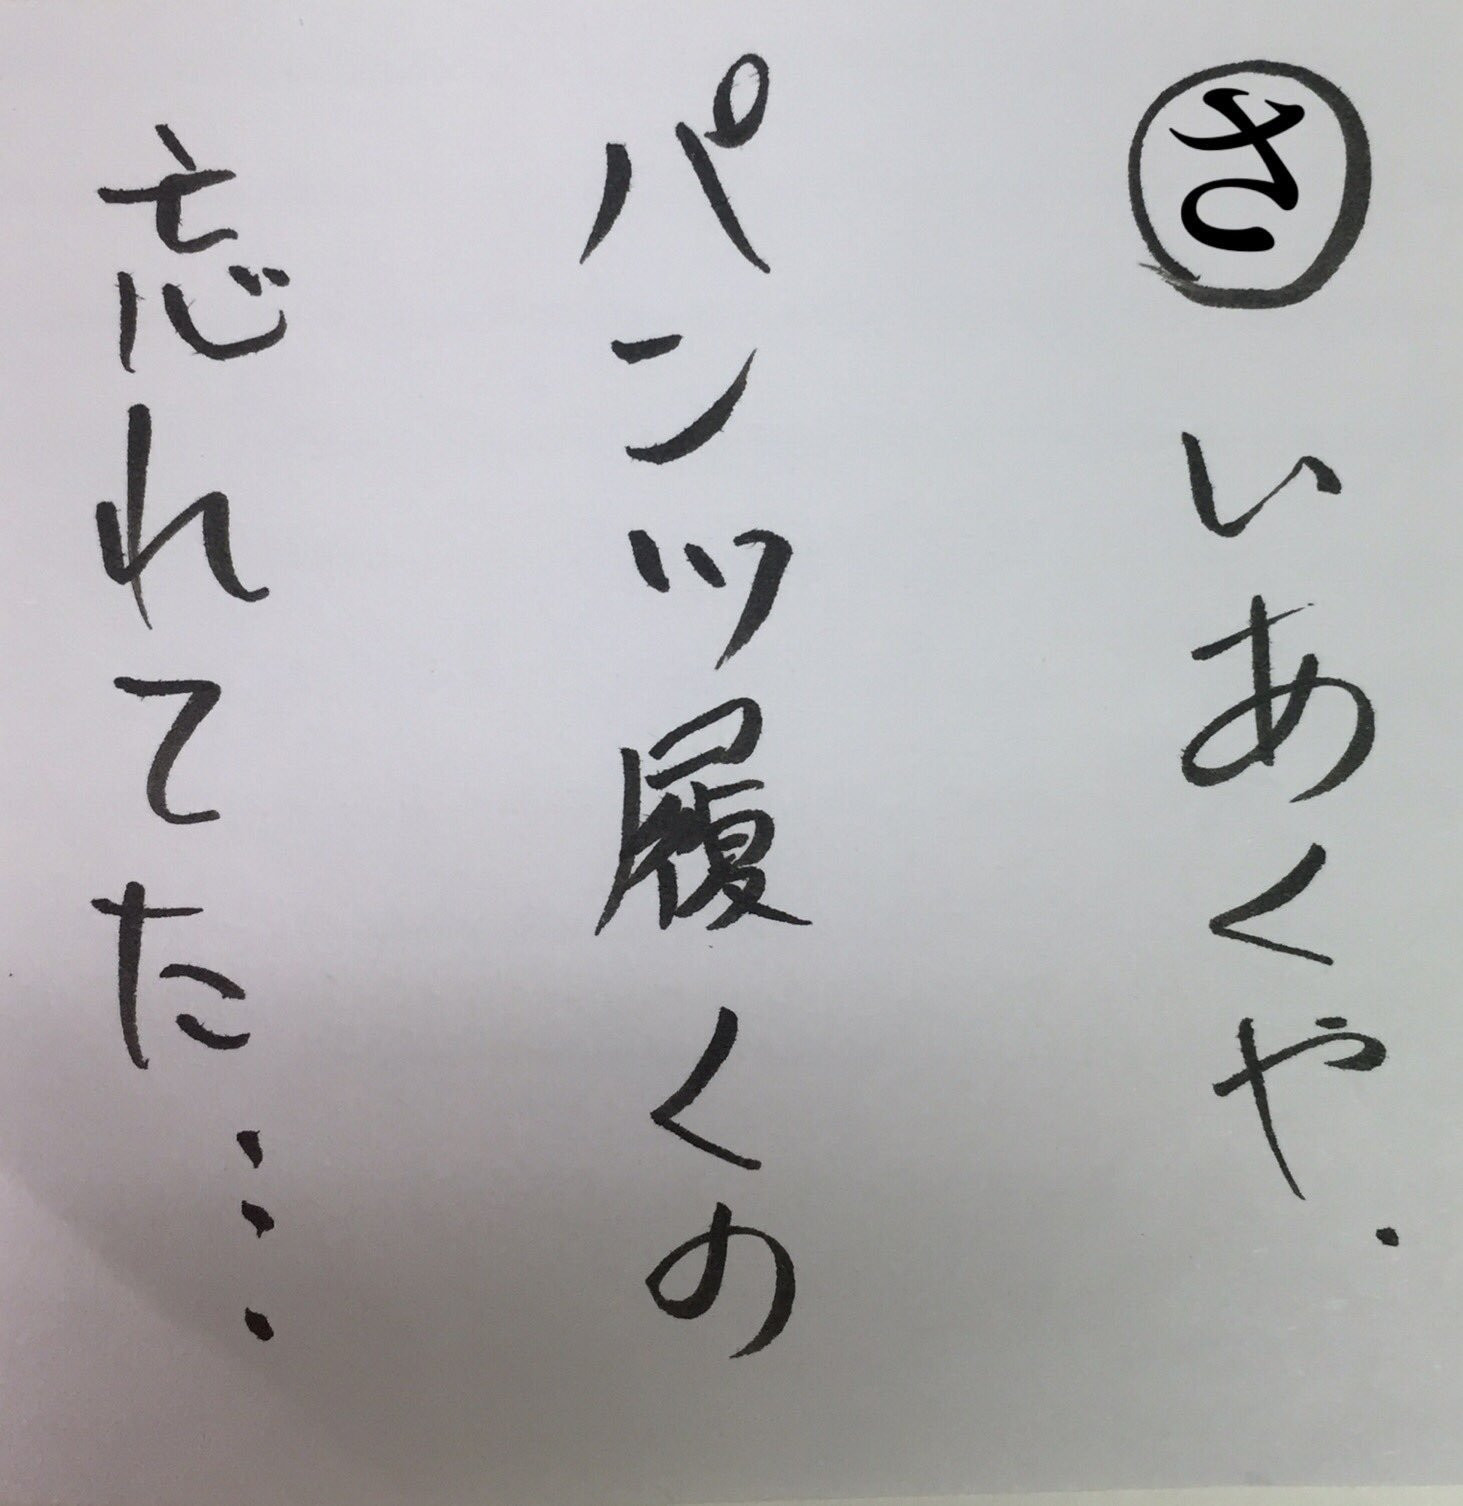 さいあくや.
パンツ履くの
忘れてた…